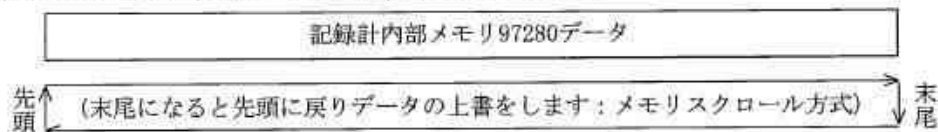 記録計内部メモリ97280データ
先頭
(末尾になると先頭に戻りデータの上書をします：メモリスクロール方式)
末尾